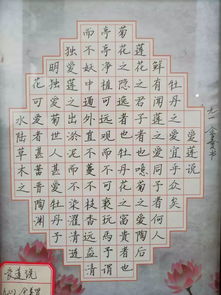 爱莲说
牡丹之爱宜乎众矣
鲜有闻莲之爱同予者何人
莲花之君子者也噫菊之爱
菊花之隐逸者也牡丹花之富贵者也
亭亭净植可远观而不可亵玩焉予谓
而不妖中通外直不蔓不枝香远益清
独爱莲之出淤泥而不染濯清涟
明独爱菊世人甚爱牡丹予
花可爱者甚蕃晋陶渊
水陆草木之
爱莲说